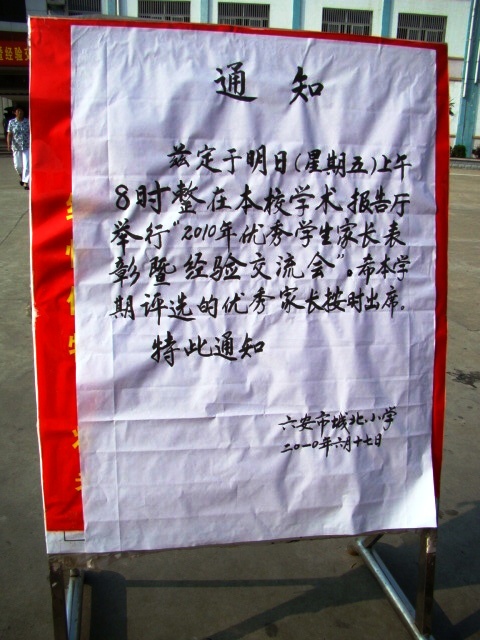 通知
兹定于明日(星期五)上午
8时整在本校学术报告厅
举行"2010年优秀学生家长表
彰暨经验交流会"。希本学
期评选的优秀家长按时出席。
特此通知
六安市城北小学
二〇一〇年六月十七日